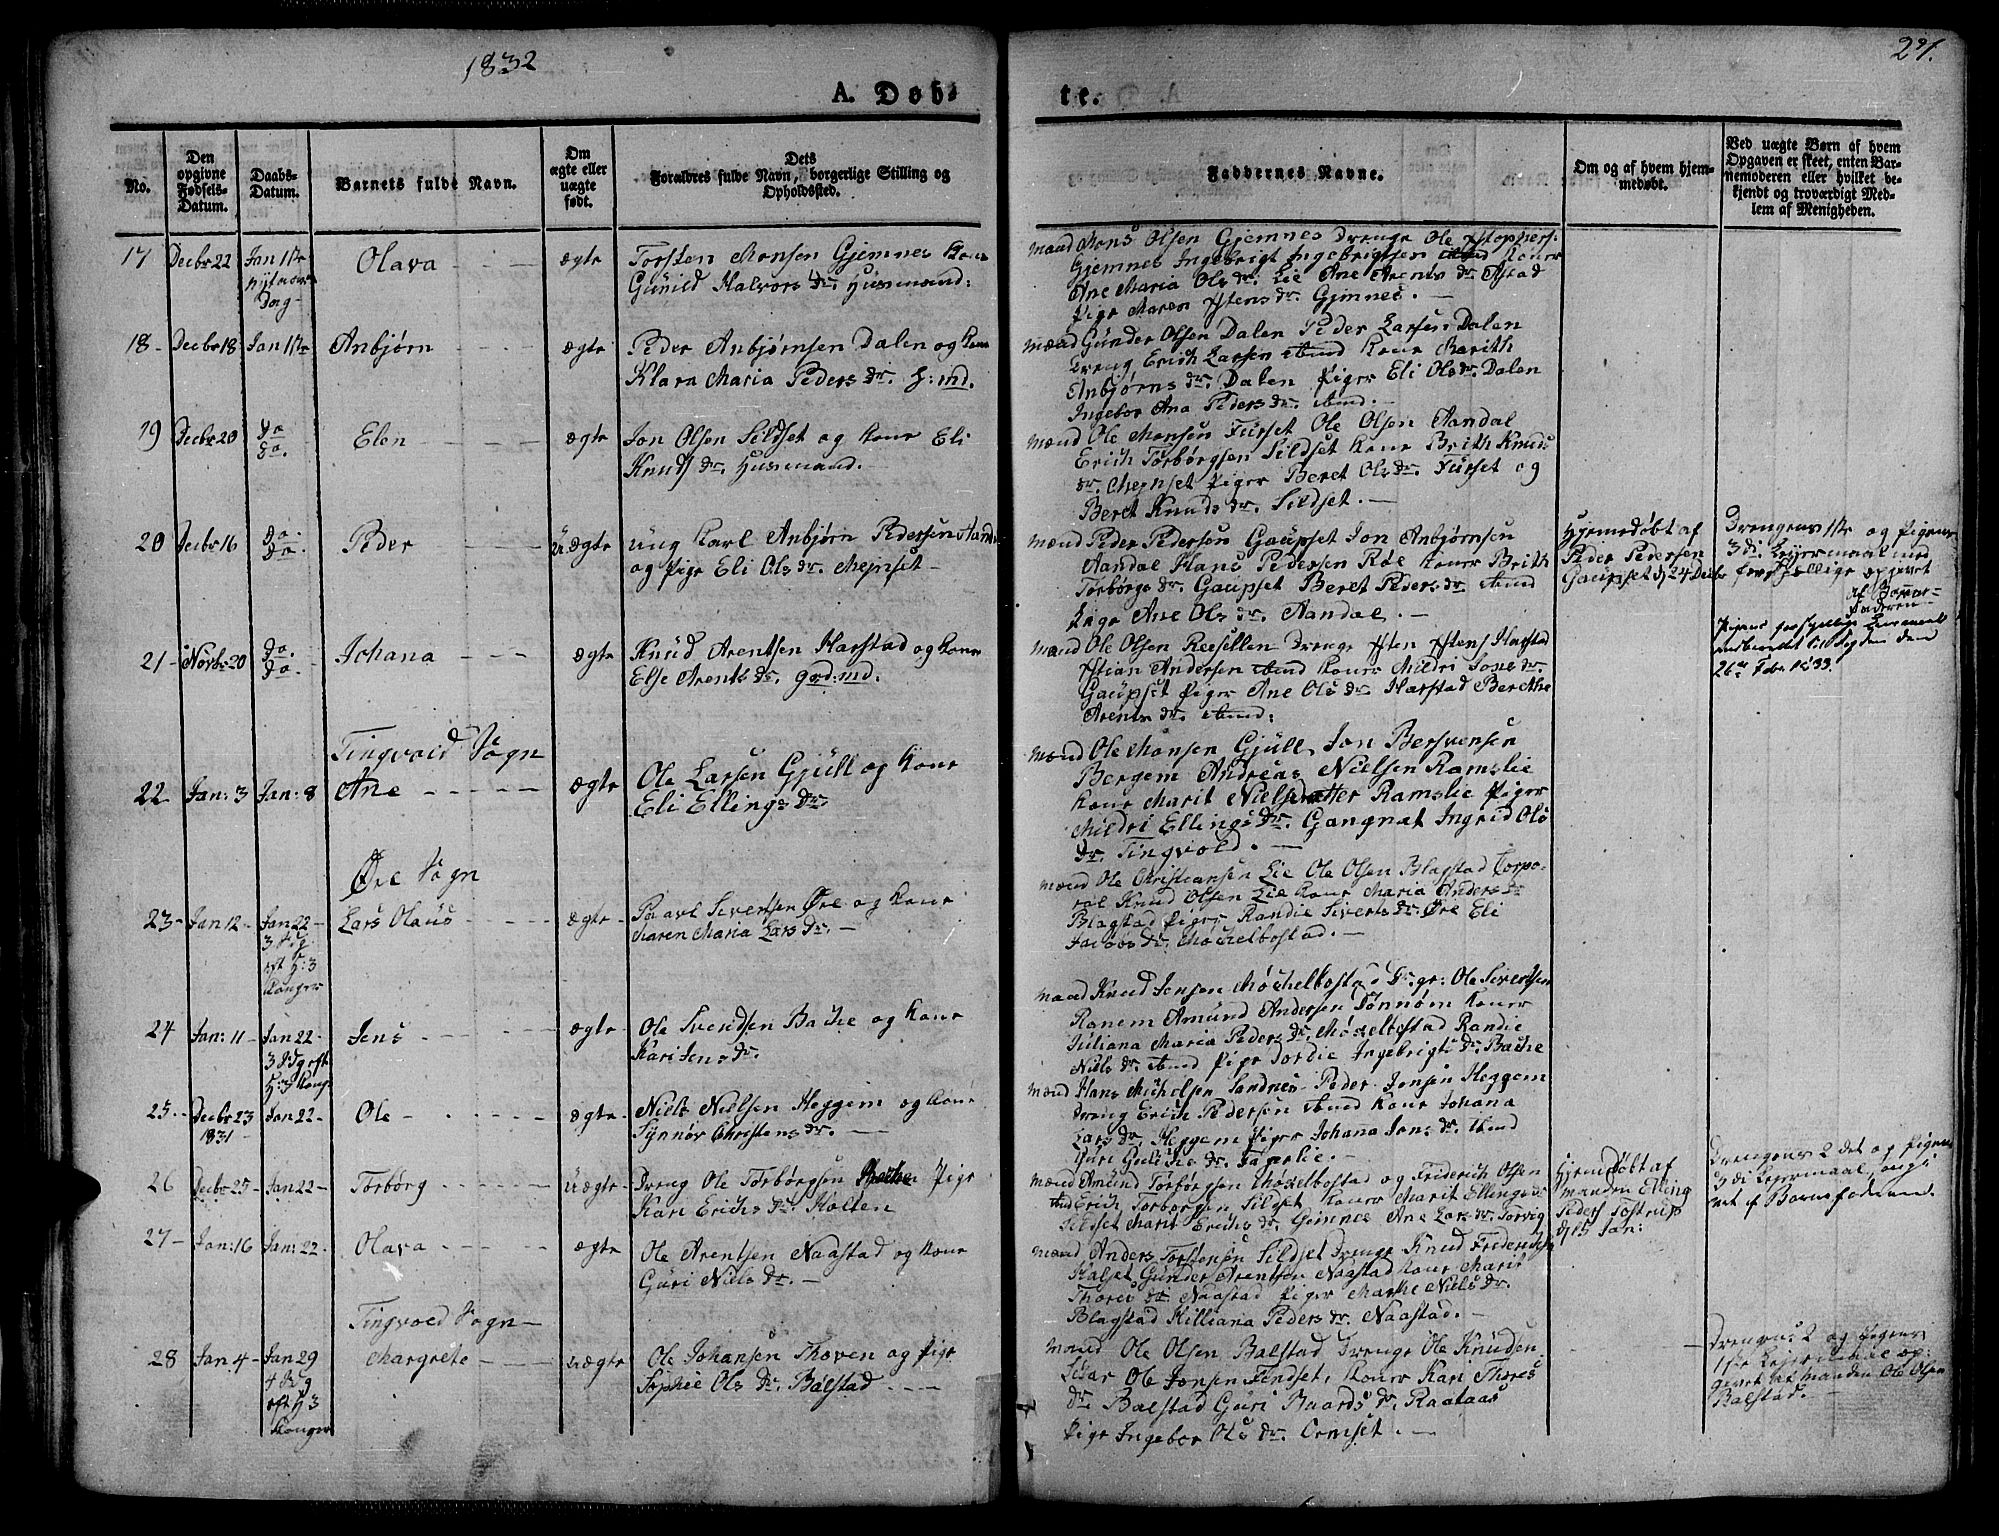 1832
291.
A. Døb-
te.
No.
Den opgivne Fødsels-Datum.
Daabs-Datum.
Barnets fulde Navn.
Om ægte eller uægte født.
Dets Forældres fulde Navn, borgerlige Stilling og Opholdssted.
Faddernes Navne.
Om og af hvem hjem-medøbt.
Ved uægte Børn af hvem
Opgaven er skeet, enten Bar-
nemoderen eller hvilket be-
kjendt og troværdigt Med-
lem af Menigheden.
17 Decbr 22 Jan 1ste Olava ægte Torsten Monsen Gjemnes Kone
nytaars Dag Gunild Halvors dr. Husmand:
Mænd Mons Olsen Gjemnes Drenge Ole
Gjemnes Ingebrigt Ingebrigtsen ibid Koner
Ane Maria Ols dr. Lie Ane Arents dr.
Pige Maren dr. Gjemnes. —
18 Decbr 18 Jan 1ste Anbjørn ægte Peder Anbjørnsen Dalen og Kone
Klara Maria Peders dr. H:md.
Mænd Gunder Olsen Dalen Peder Larsen Dalen
Dreng, Erich Larsen ibid Kone Barith
Anbjørns dr. Dalen Piger Eli Ols dr. Dalen
Ingebor Ana Peders dr. ibid. —
19 Decbr 20 Do Do. Elen ægte Jon Olsen Sildset og Kone Eli
Knuds dr. Husmand. —
Mænd Ole Monsen Furset Ole Olsen Aandal
Erich Torbørgsen Sildset Kone Brith Knuds
dr. Mepset Piger Beret Ols dr. Furset og
Beret Knuds dr. Sildset. —
20 Decbr 16 Do. Do. Peder uægte ung Karl Anbjørn Pedersen
og Pige Eli Ols dr. Mepset —
Mænd Peder Pedersen Gaupset Jon Anbjørnsen
Aandal Hans Pedersen Røe Koner Brith
Torbørgs dr. Gaupset Beret Peders dr. ibid
Pige Ane Ols dr. Aandal. —
Hjemedøbt af
Peder Pedersen
Gaupset d. 24 Decbr
Drengens 1ste og Pigens
3di Leiermaal med
opgivet
af Barne-
faderen
26de Febr. 1833.
21 Novbr 20 Do. Do. Johana ægte Knud Arentsen Harstad og Kone
Else Arents dr. grd:md.
Mænd Ole Olsen Drenge
Andersen ibid Koner Mildri Jons dr.
Gaupset Piger Ane Ols dr. Harstad Berethe
Arents dr. ibid:
Tingvold Sogn
22 Jan: 3 Jan: 8 Ane ægte Ole Larsen Gjüll og Kone
Eli Ellings dr.
Mænd Ole Monsen Gjüll Jon Bersvensen
Bergem Andreas Nielsen Ramslie
Kone Marit Nielsdatter Ramslie Piger
Mildri Ellings dr. Gangnat Ingrid Ols
dr. Tingvold. —
Øre Sogn
23 Jan 12 Jan 22 Lars Olaus ægte Paavl Sivertsen Øre og Kone
3 Sdg eft H:3 Konger Maren Maria Lars dr. —
Mænd Ole Christiansen Lie Ole Olsen Blagstad Corpo-
ral Knud Olsen Lie Kone Maria Anders dr
Blagstad Piger Randie Siverts dr. Øre Eli
Jacobs dr. Mochelbostad. —
24 Jan: 11 Jan 22 Jens ægte Ole Svendsen Bache og Kone
3 Sdg eft H:3 Kong Kari Jens dr.
Mænd Knud Jonsen Mochelbostad Ole Sivertsen
Ranem Amund Andersen Tønnøm Koner
Juliana Maria Peders dr. Mochelbostad Randie
Niels dr. ibid Pige Jordie Ingebrigts dr. Bache
25 Decbr 23 1831 Jan 22 Ole ægte Niels Nielsen Heggem og Kone
Synnøv Christens dr. —
Mænd Hans Michelsen Sandnes Peder Jonsen Heggem
Dreng Erich Pedersen ibid Kone Johana
Lars dr. Heggem Piger Johana Jons dr. ibid
Guri dr. Fagerlie. —
26 Decbr 25 Jan 22 Torbørg uægte Dreng Ole Torbørgsen Pige
Kari Erichs dr. Holten
Mænd Amund Torborgsen Mochelbostad og Friderich Olsen
ibid Erich Torborgsen Sildset Koner Marit Ellings dr
Sildset Marit Erichs dr. Gjemnes Ane Lars dr. Torvig
Hjemedøbt af
Manden Elling
Peders
d. 15 Jan:
Drengens 2 det og Pigens
3di Leiermaal, angi-
vet af Barnefaderen.
27 Jan: 16 Jan: 22 Olava ægte Ole Arentsen Naastad og Kone
Guri Niels dr. —
Mænd Anders Torstensen Sildset Drenge Knud Friderichs
Kalset Gunder Arentsen Naastad Kone Marit
Thores dr. Naastad Piger Marthe Niels dr.
Blagstad Killiana Peders dr. Naastad. —
Tingvold Sogn —
28 Jan 4 Jan 29 Margrete uægte Ole Johansen Thoven og Pige
4 Sdg eft H 3 Konger Sophie Ols dr. Bølstad —
Mænd Ole Olsen Balstad Drenge Ole Knudsen
Ole Jonsen Findset, Koner Kari Thores
dr. Balstad Guri Baards dr. Raataas
Pige Ingebor Ols dr. Ormset. —
Drengens 2 og Pigens
1ste Leiermaal op-
givet af Manden Ole Olsen
Balstad. —